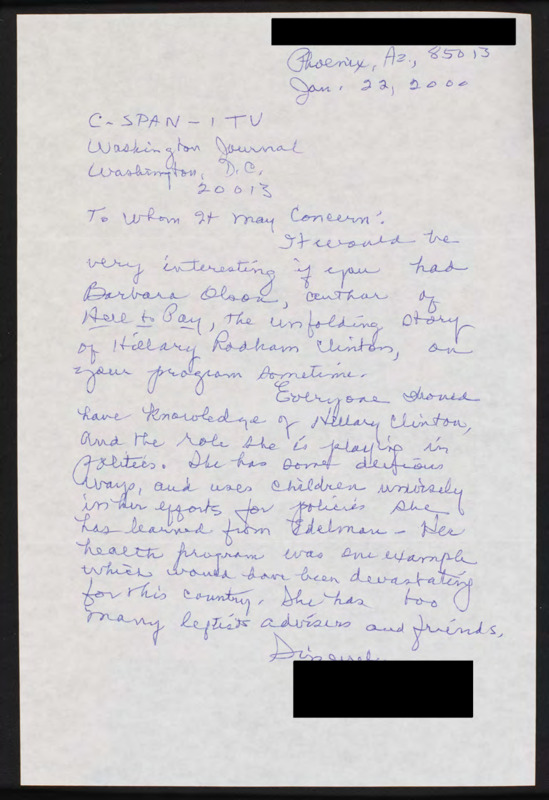 Phoenix, Az., 85013
Jan. 22, 2000
C-SPAN-1 TV
Washington Journal
Washington, D.C.
20013
To Whom It May Concern:
It would be
very interesting if you had
Barbara Olson, author of
Hell to Pay, the unfolding story
of Hillary Rodham Clinton, on
your program sometime.
Everyone should
have knowledge of Hillary Clinton,
and the role she is playing in
politics. She has some devious
ways, and uses children unwisely
in her efforts for policies she
has learned from Edelman - Her
health program was one example
which would have been devastating
for this country. She has too
many leftists advisers and friends.
Sincerely